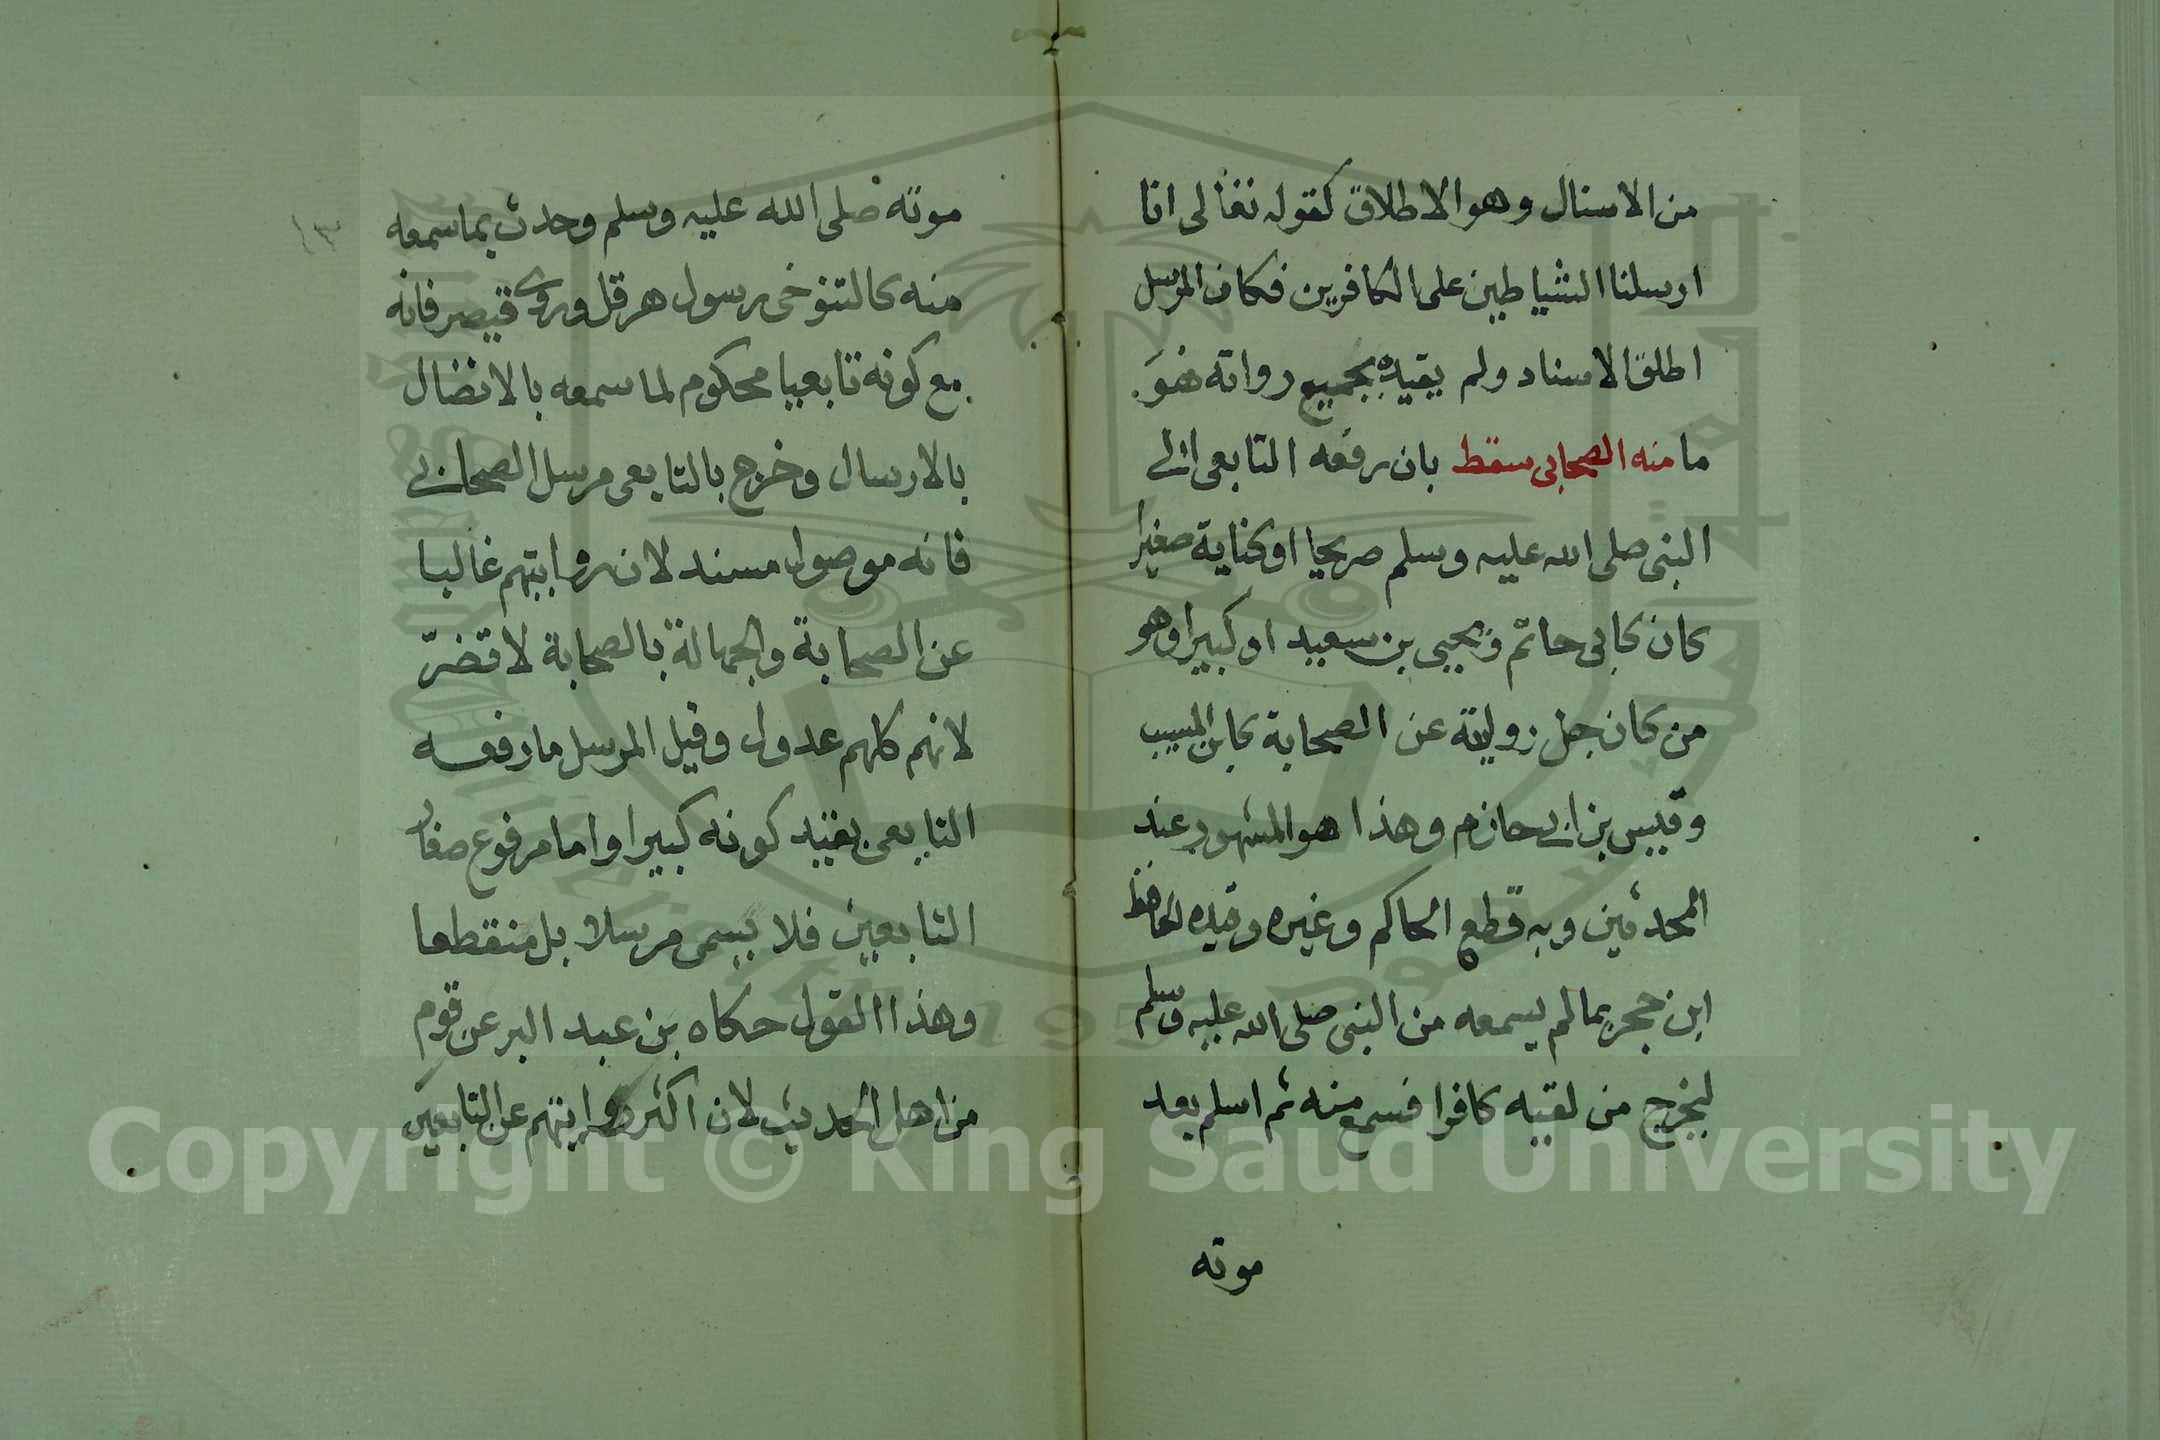 من الاسنال وهو الاطلاق كقوله تعالى انا
ارسلنا الشياطين على الكافرين فكان المرسل
اطلق الاسناد ولم يقيده بجميع رواته فهو
ما منه الصحابى سقط بان رفعه التابعى الى
النبى صلى الله عليه وسلم صريحا او كناية صغيرا
كان كابى حاتم ويحيى بن سعيد او كبيرا وهو
من كان جل روايته عن الصحابة كابن المسيب
وقيس بن ابى حازم وهذا هو المشهور عند
المحدثين وبه قطع الحاكم وغيره وقيده الحافظ
ابن حجر بما لم يسمعه من النبى صلى الله عليه وسلم
ليخرج من لقيه كافرا فسمع منه ثم اسلم بعد
موته
موته صلى الله عليه وسلم وحدث بما سمعه
منه كالتنوخى رسول هرقل وروى قيصر فانه
مع كونه تابعيا محكوم لما سمعه بالاتصال
بالارسال وخرج بالتابعى مرسل الصحابى
فانه موصول مسند لان روايتهم غالبا
عن الصحابة والجهالة بالصحابة لا تضرّ
لانهم كلهم عدول وقيل المرسل ما رفعه
التابعى بقيد كونه كبيرا واما مرفوع صغار
التابعين فلا يسمى مرسلا بل منقطعا
وهذا القول حكاه بن عبد البر عن قوم
من اهل الحديث لان اكثر روايتهم عن التابعين
١٣
Copyright © King Saud University
1957